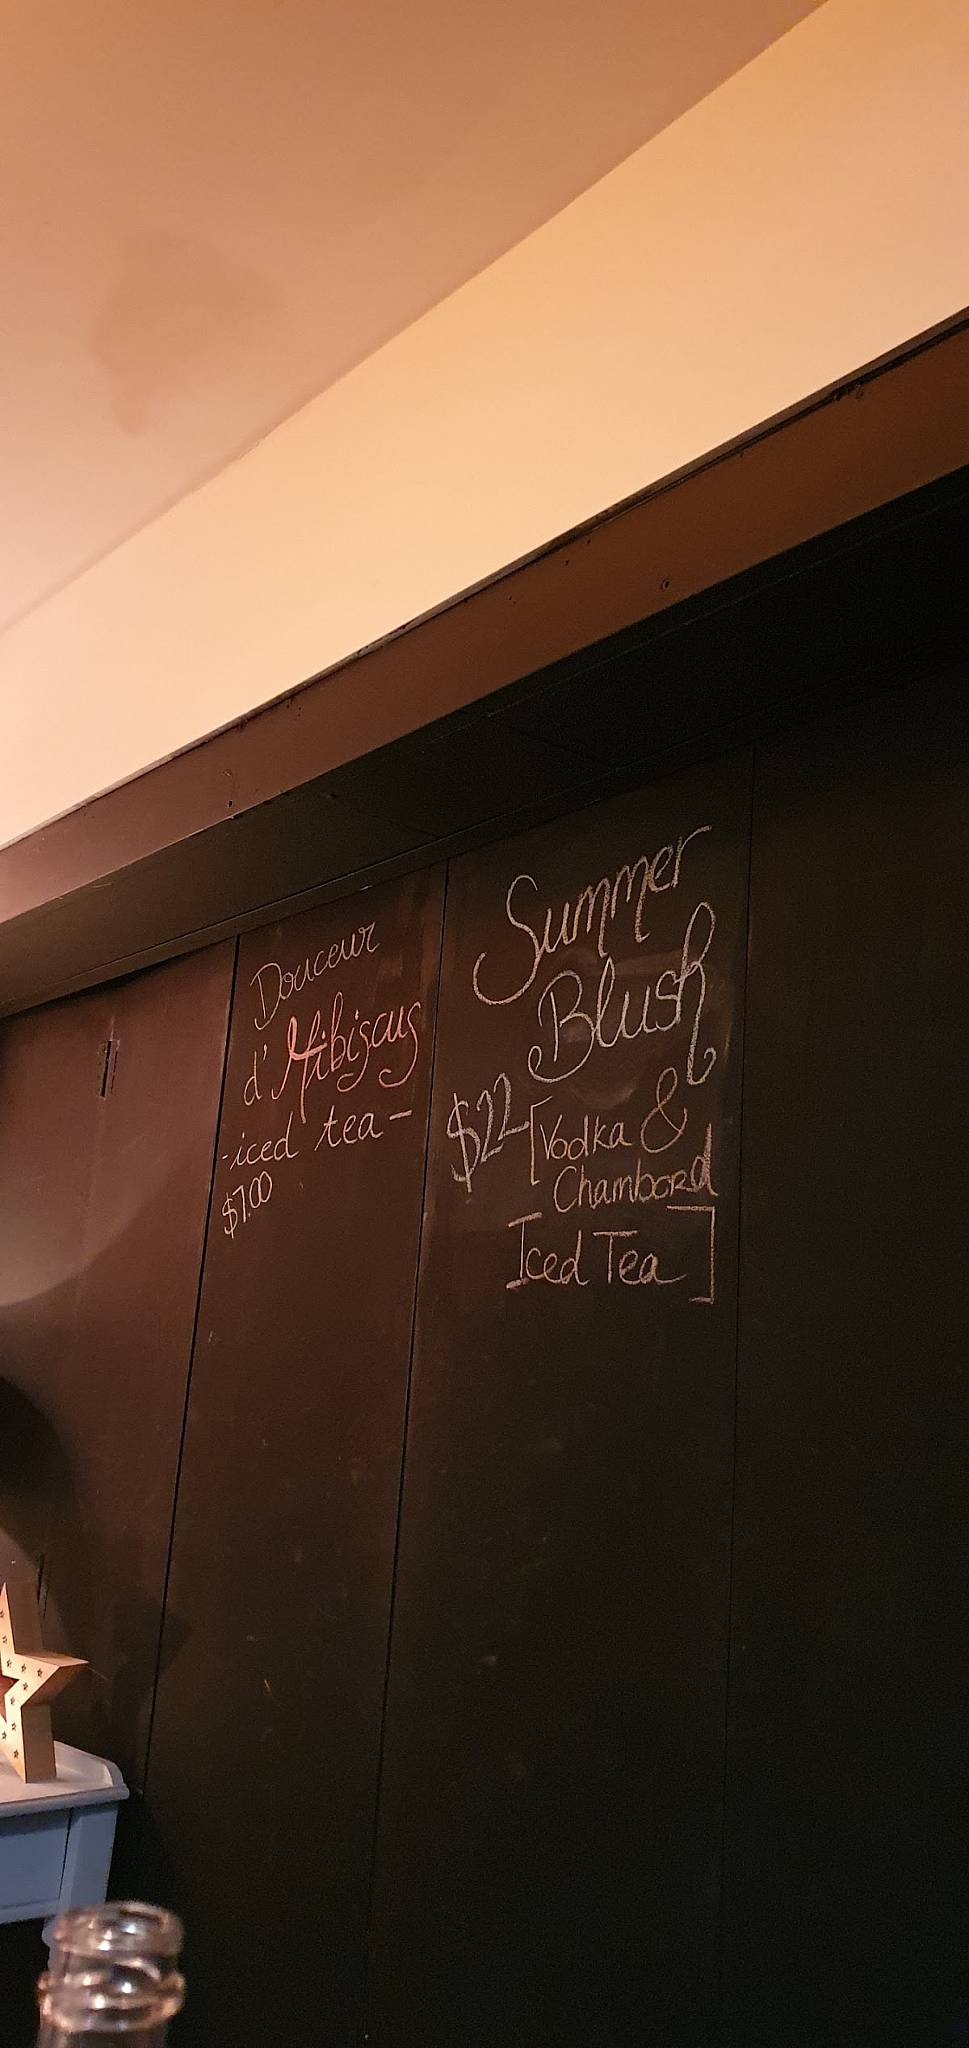 Douceur
d'Hibiscus
-iced tea-
$7.00
Summer
Blush
$22 [Vodka &
Chambord
Iced Tea]